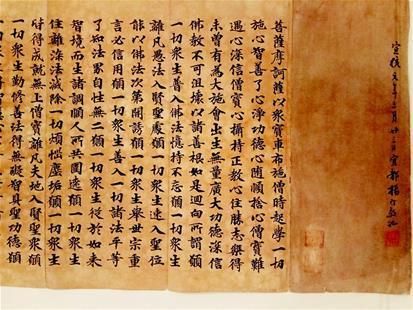 宣統元年三月廿三日宜都楊守敬記
菩薩摩訶薩以眾寶車布施僧時起學一切
施心智善了心淨功德心隨順捨心僧寶難
遇心深信僧寶心攝持正教心住勝志樂得
未曾有為大施會出生無量廣大功德深信
佛教不可沮壞以諸善根如是迴向所謂願
一切眾生普入佛法憶持不忘願一切眾生
離凡愚法入賢聖處願一切眾生速入聖位
能以佛法次第開誘願一切眾生舉世宗重
言必信用願一切眾生善入一切諸法平等
了知法界自性無二願一切眾生從於如來
智境而生諸調順人所共圍遶願一切眾生
住離染法滅除一切煩惱塵垢願一切眾生
皆得成就無上僧寶離凡夫地入賢聖眾願
一切眾生勤修善法得無礙智具聖功德願